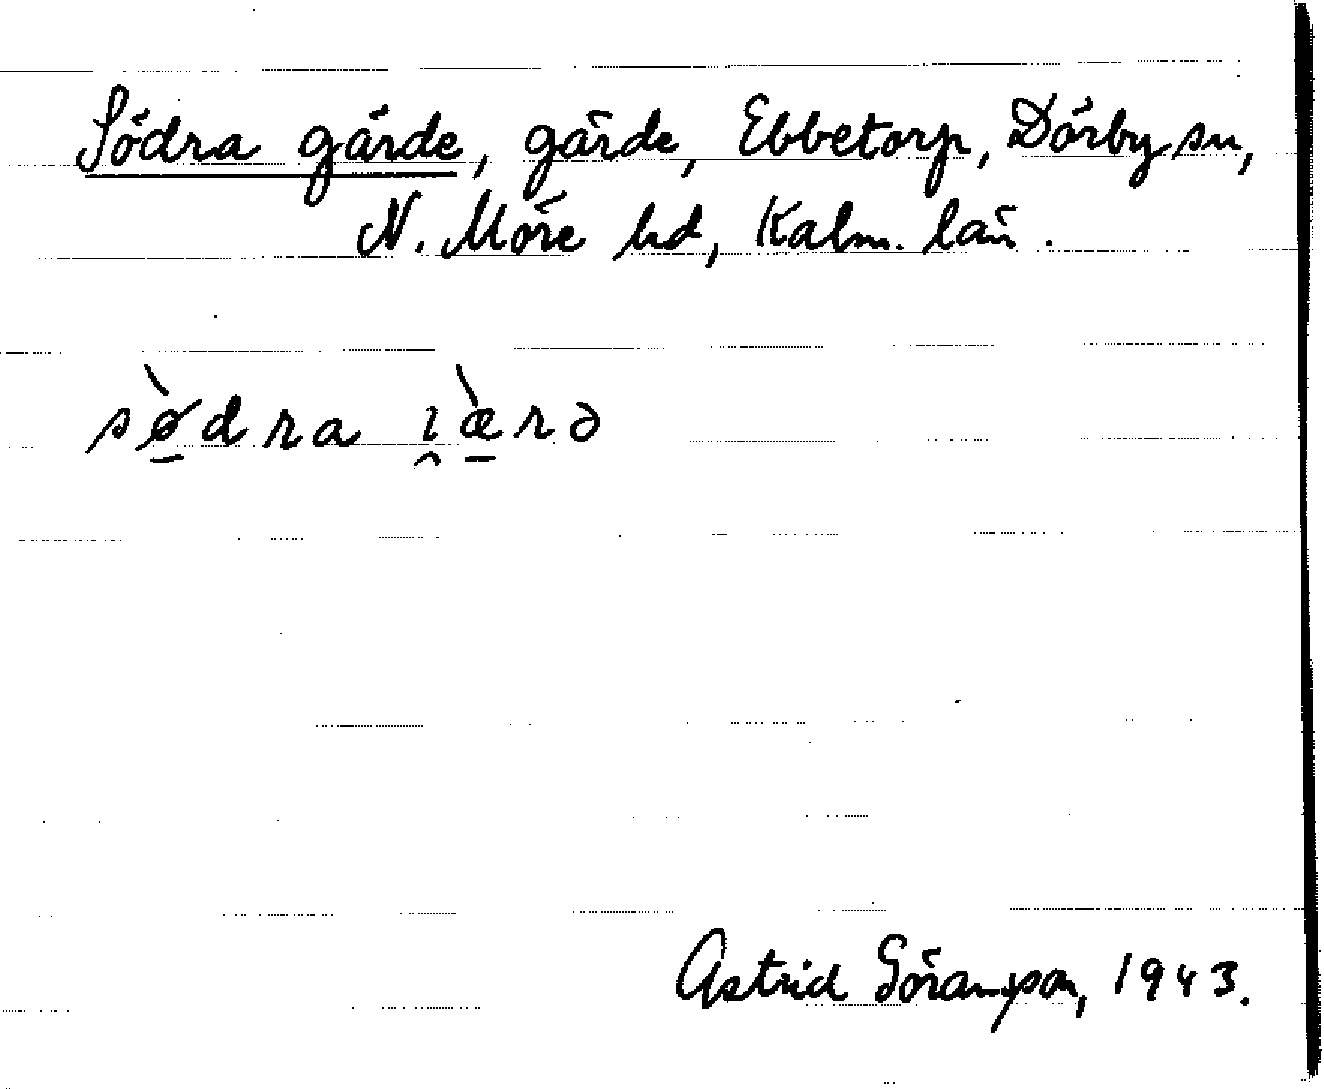 Södra gärde, gärde, Ebbetorp, Dörby sn,
N. Möre hd, Kalm. län.
sø̠̀dra i̯æ̠̀rə
Astrid Göransson, 1943.